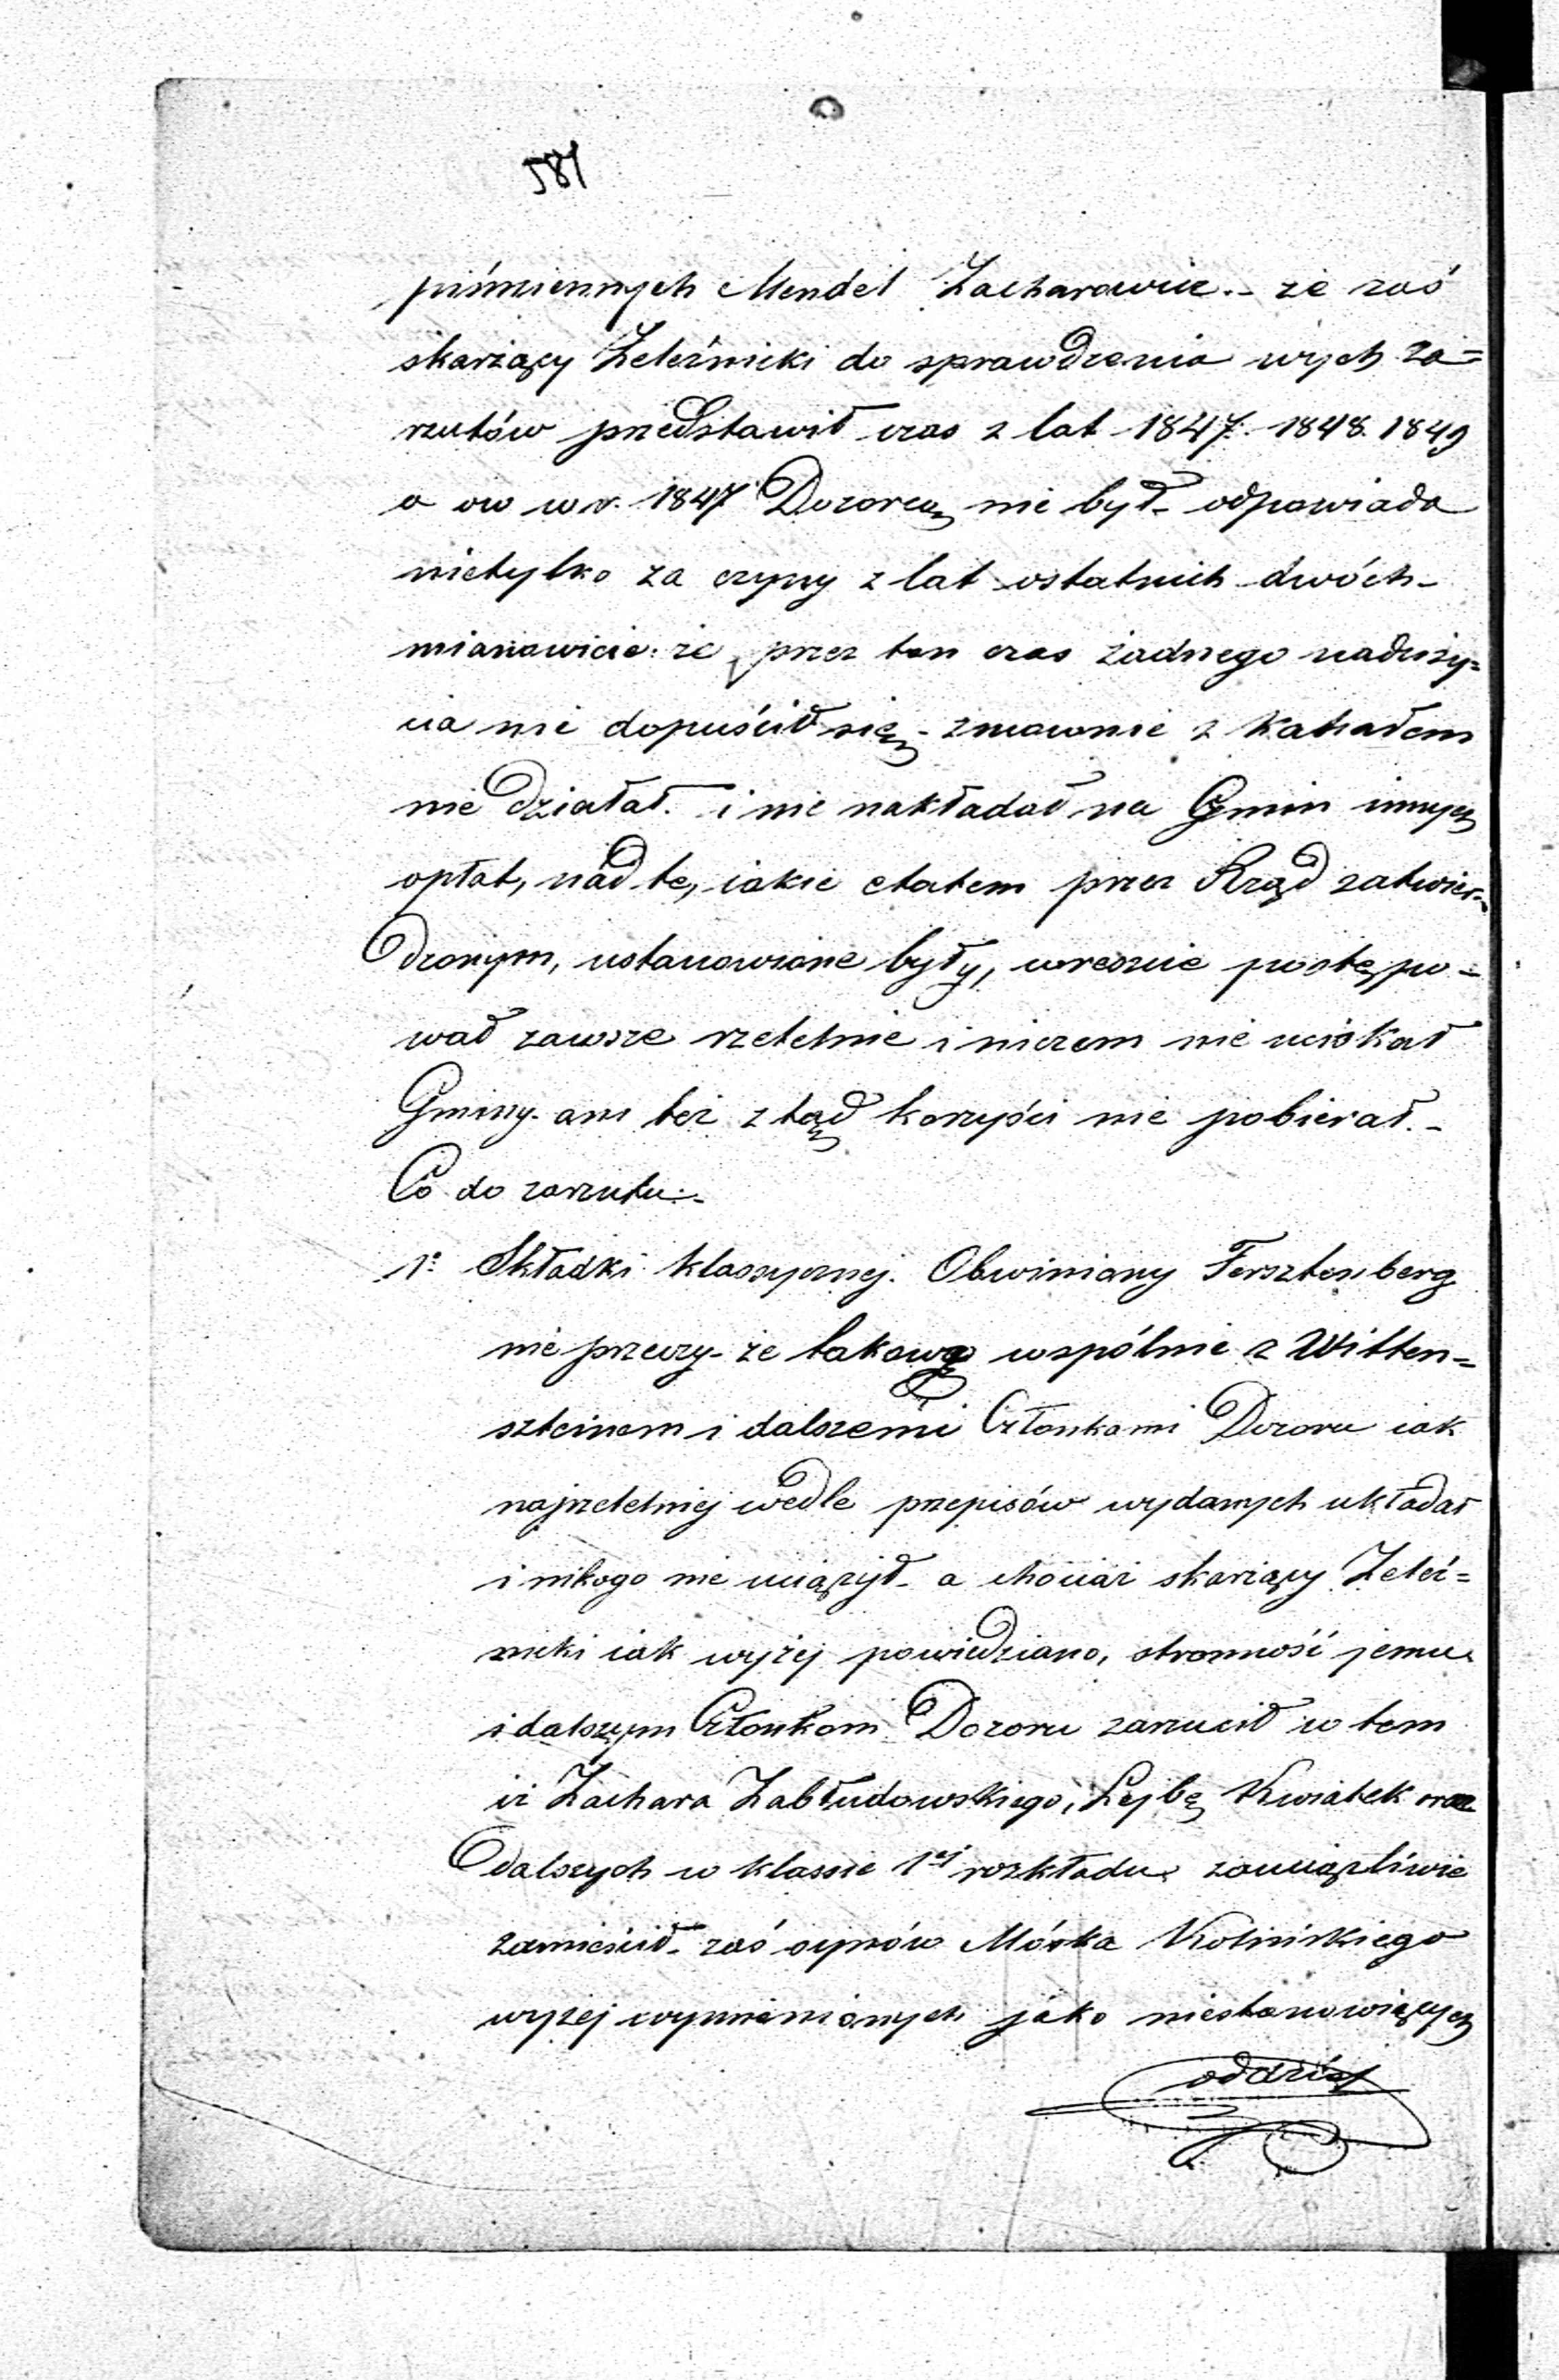 581
piśmiennych Mendel Zacharowicz.- że zaś
skarżący Żeleźnicki do sprawdzenia wych za=
rzutów przedstawił czas z lat 1847. 1848. 1849
a ow w r. 1847 Dozorcą nie był- odpowiada
nietylko za czyny z lat ostatnich dwóch-
mianowicie: że przez ten czas żadnego naduży=
cia nie dopuścił się- zmownie z Kahałem
nie działał. i nie nakładał na Gmin innych
opłat, nád te, iakie etatem przez Rząd zatwier=
dzonym, ustanowione były, wreszcie postępo=
wał zawsze rzetelnie i niczem nie uciskał
Gminy- ani też ztąd korzyści nie pobierał.-
Co do zarzutu:-
1o Składki klassycznej. Obwiniany Fersztenberg
nie przeczy- że takową wspólnie z Witten=
szteinem i dalszemi Członkami Dozoru iak
najrzetelniej wedle przepisów wydanych układał
i nikogo nie uciążył- a chociaż skarżący Żeleź=
nicki iak wyżej powiedziano, stronność jemu
i dalszym Członkom Dozoru zarzucił w tem
iż Zachara Zabłudowskiego, Lejbę Kwiatek oraz
dalszych w klassie 1ej rozkładu zauciążliwie
zamieścił- zaś synów Mośka Kolińskiego
wyżej wymienionych jako niestanowiących
oddziel